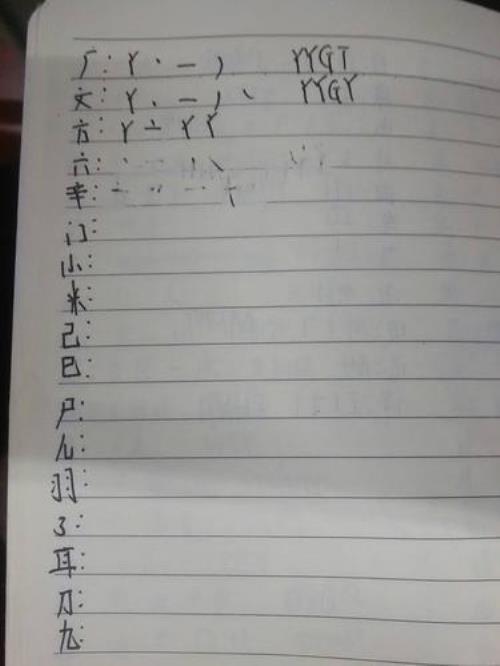 广: Y 丶 一 丿 YYGT
文: Y 、 一 丿 丶 YYGY
方: Y 亠 Y Y
六: 丶 一 丿 乀
辛: 亠 丷 一 十
门:
小:
米:
己:
巳:
尸:
羽:
了:
耳:
刀:
九: